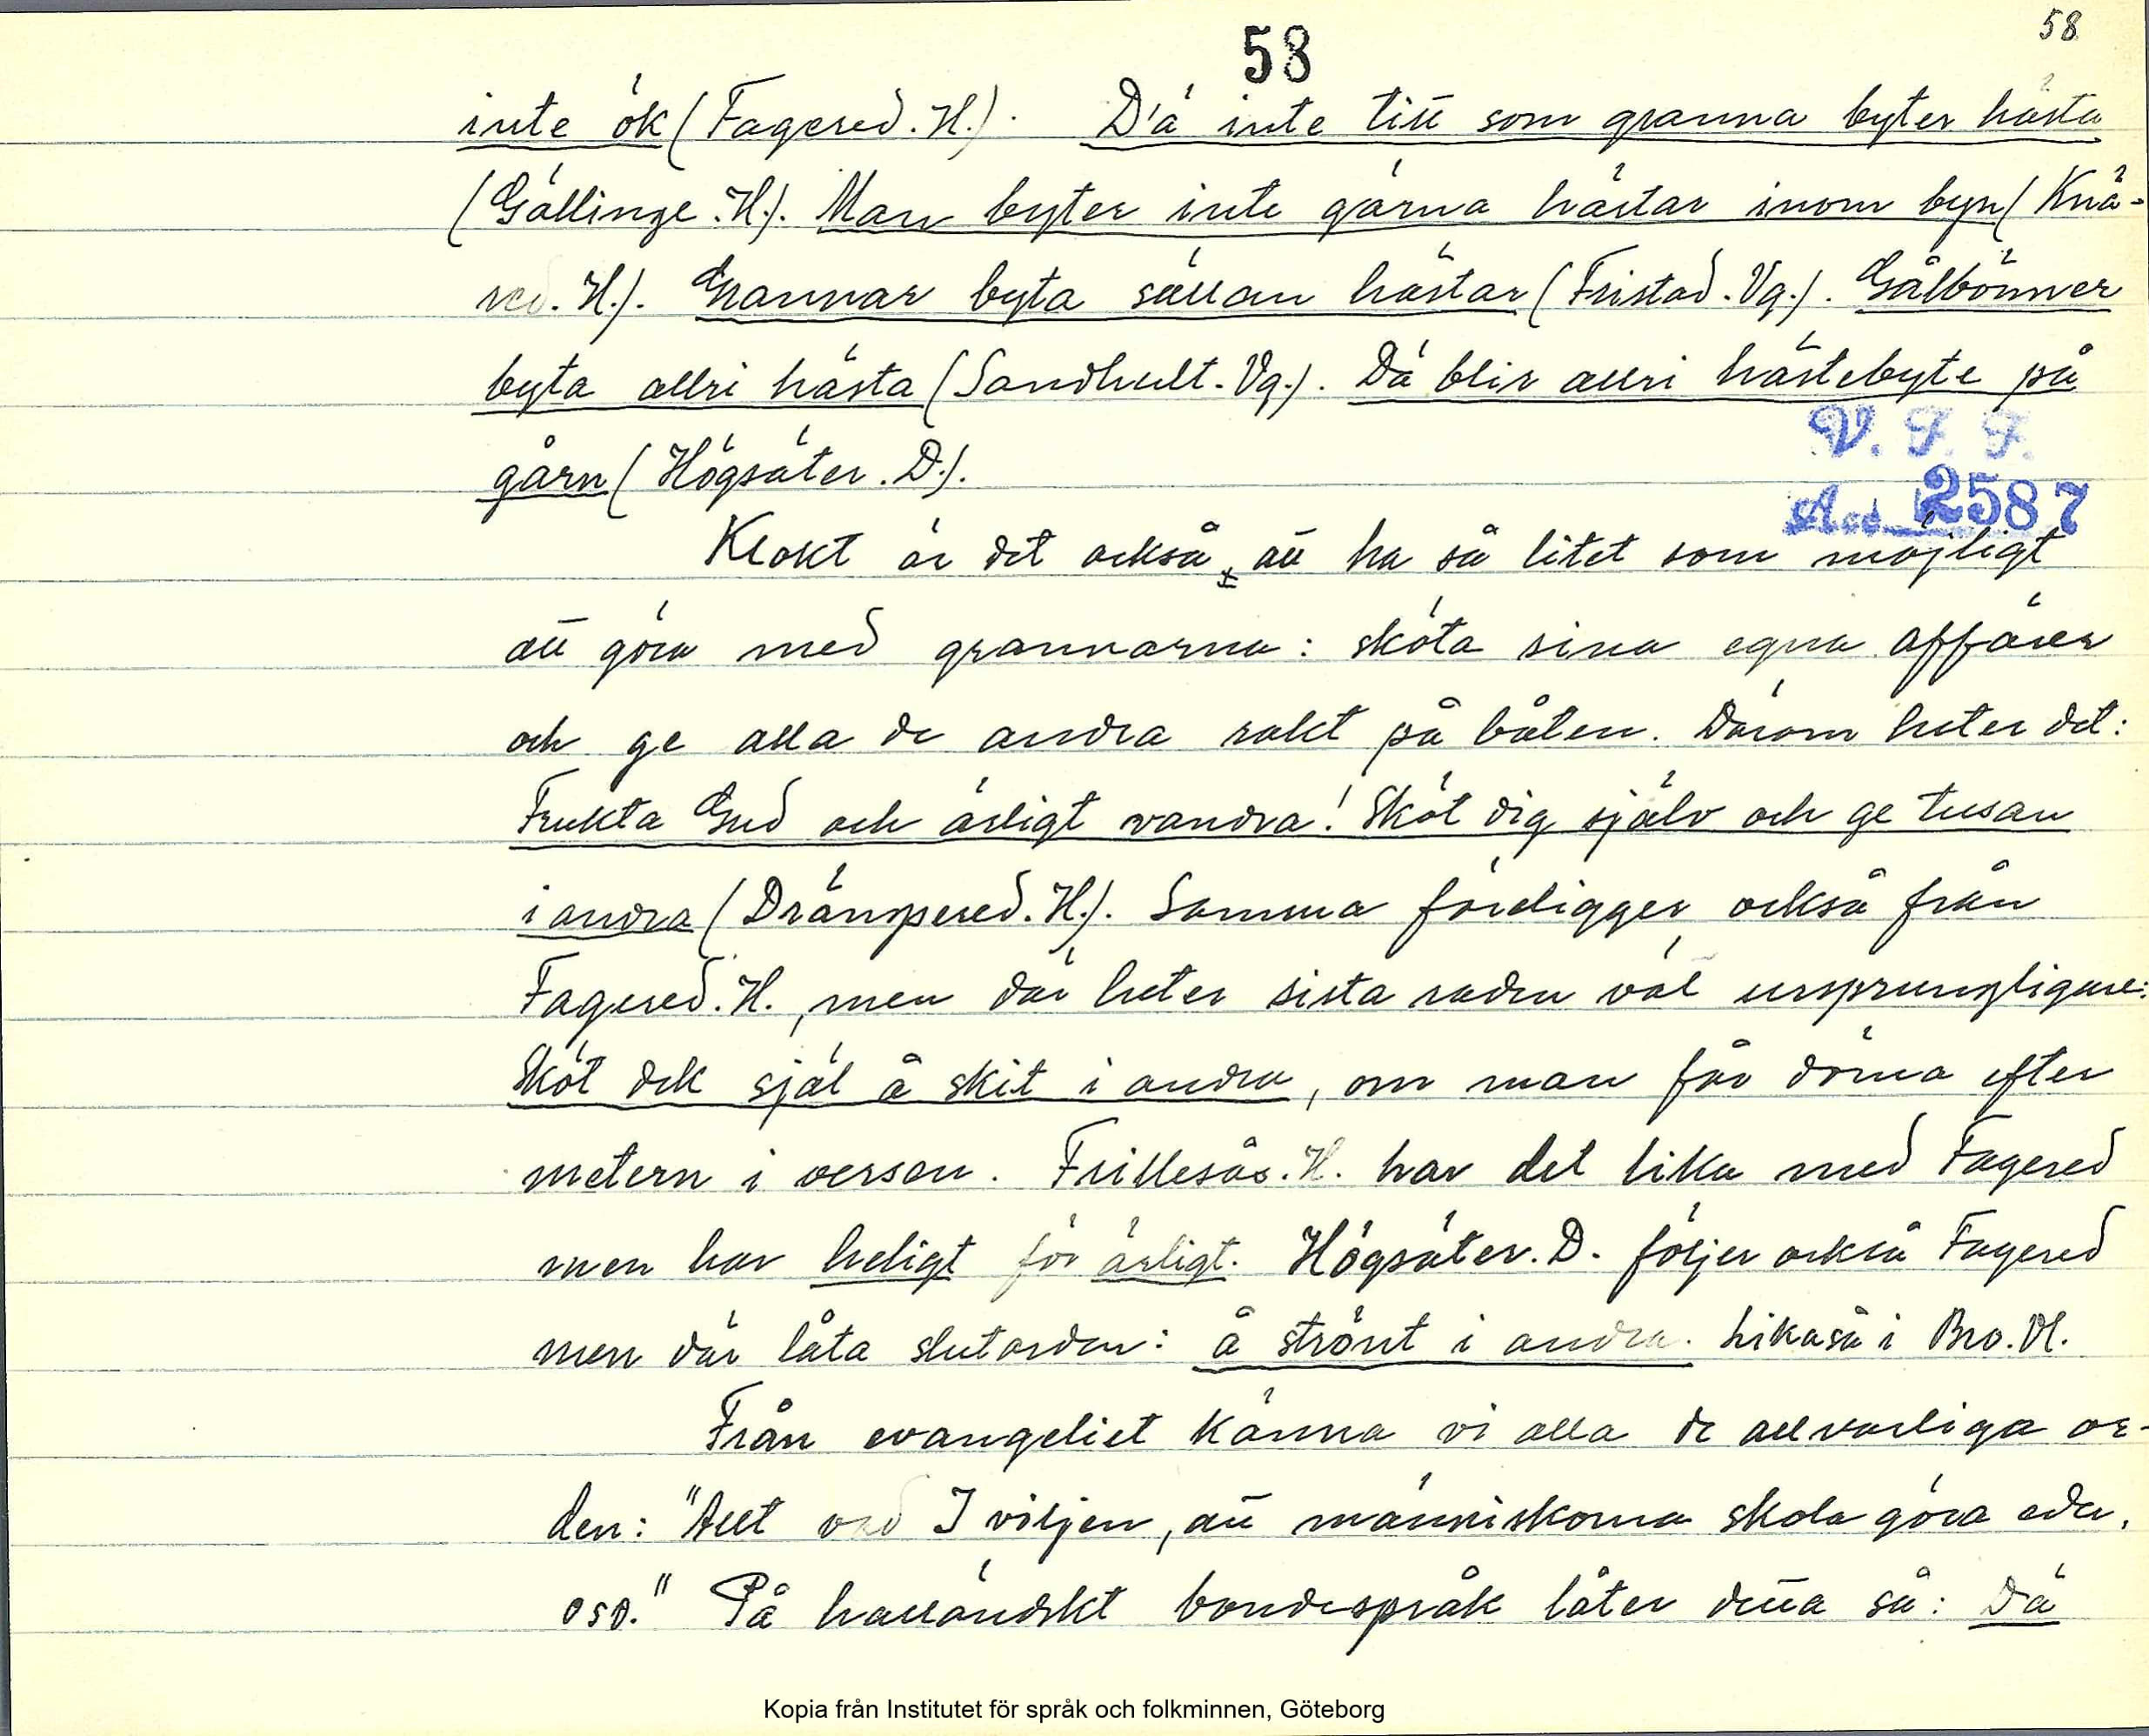 58
58
inte ök (Fagered. H.). D'ä inte titt som granna byter hästa
(Gällinge. H.). Man byter inte gärna hästar inom byn (Knä-
red. H.). Grannar byta sällan hästar (Fristad. Vg.). Gålbönner
byta allri hästa (Sandhult. Vg.). Dä blir allri hästebyte på
gårn (Högsäter. D.).
V. F. F.
Acc. 2587
Klokt är det också att ha så litet som möjligt
att göra med grannarna: sköta sina egna affärer
och ge alla de andra rakt på båten. Därom heter det:
Frukta Gud och ärligt vandra! Sköt dig själv och ge tusan
i andra (Drängsered. H.). Samma föreligger också från
Fagered. H., men där heter sista raden väl ursprungligare:
Sköt dek själ å skit i andra, om man får döma efter
metern i versen. Frillesås. H. har det lika med Fagered
men har heligt för ärligt. Högsäter. D. följer också Fagered
men där låta slutorden: å strönt i andra. Likaså i Bro. Vl.
Från evangeliet känna vi alla de allvarliga or-
den: "Allt vad I viljen, att människorna skola göra eder,
osv." På halländskt bondespråk låter detta så: Dä
Kopia från Institutet för språk och folkminnen, Göteborg